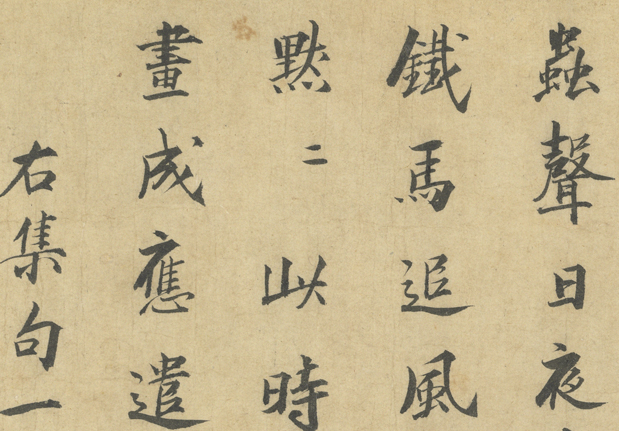 蟲聲日夜
鐵馬追風
默二此時
畫成應遣
右集句一